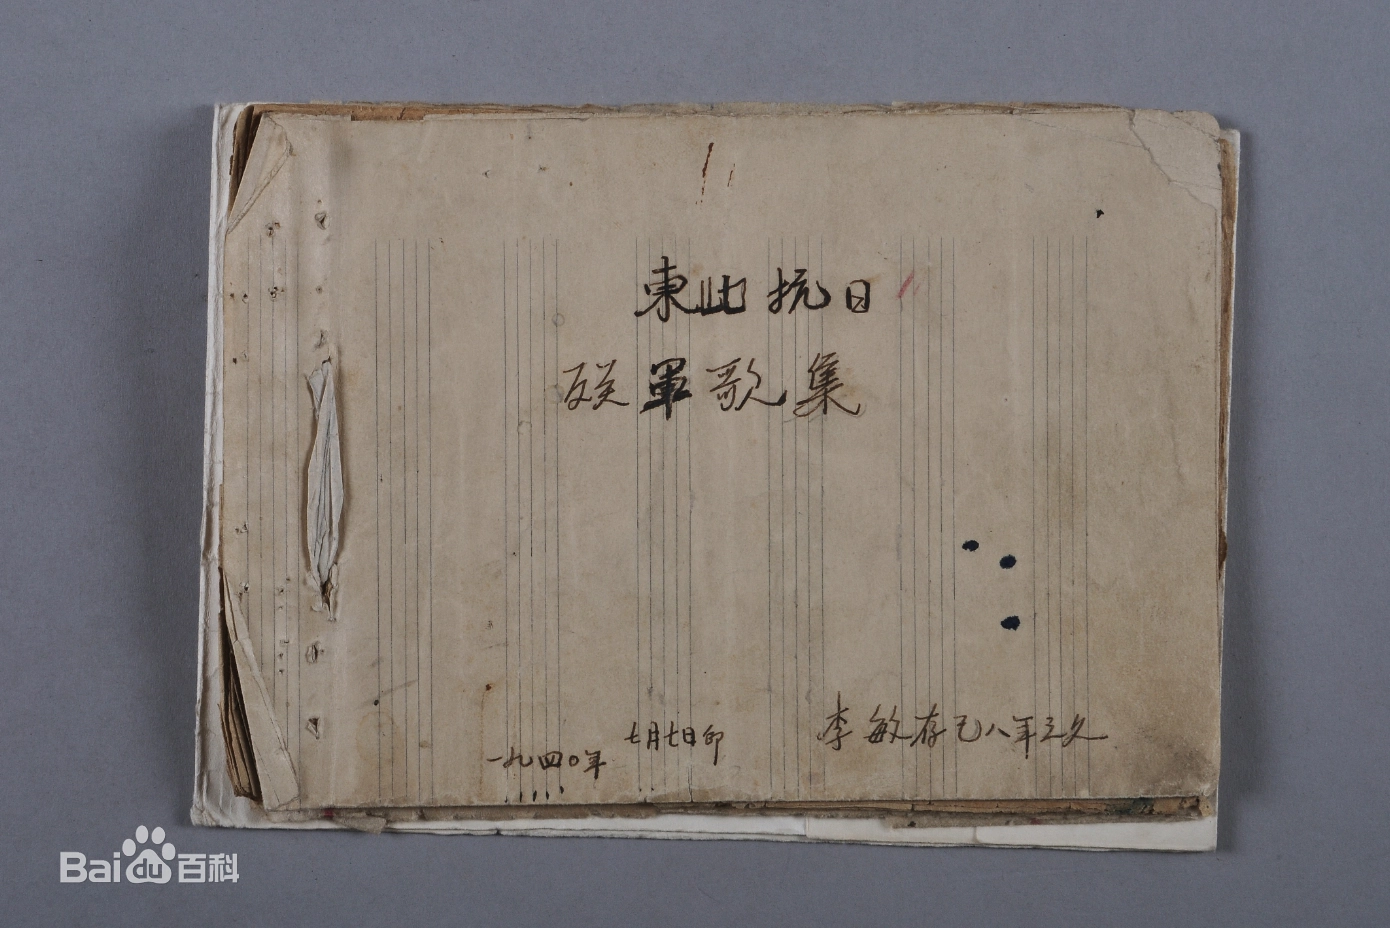 東北抗日
联軍歌集
一九四〇年
七月七日印
李敏存已八年之久
Bai du 百科